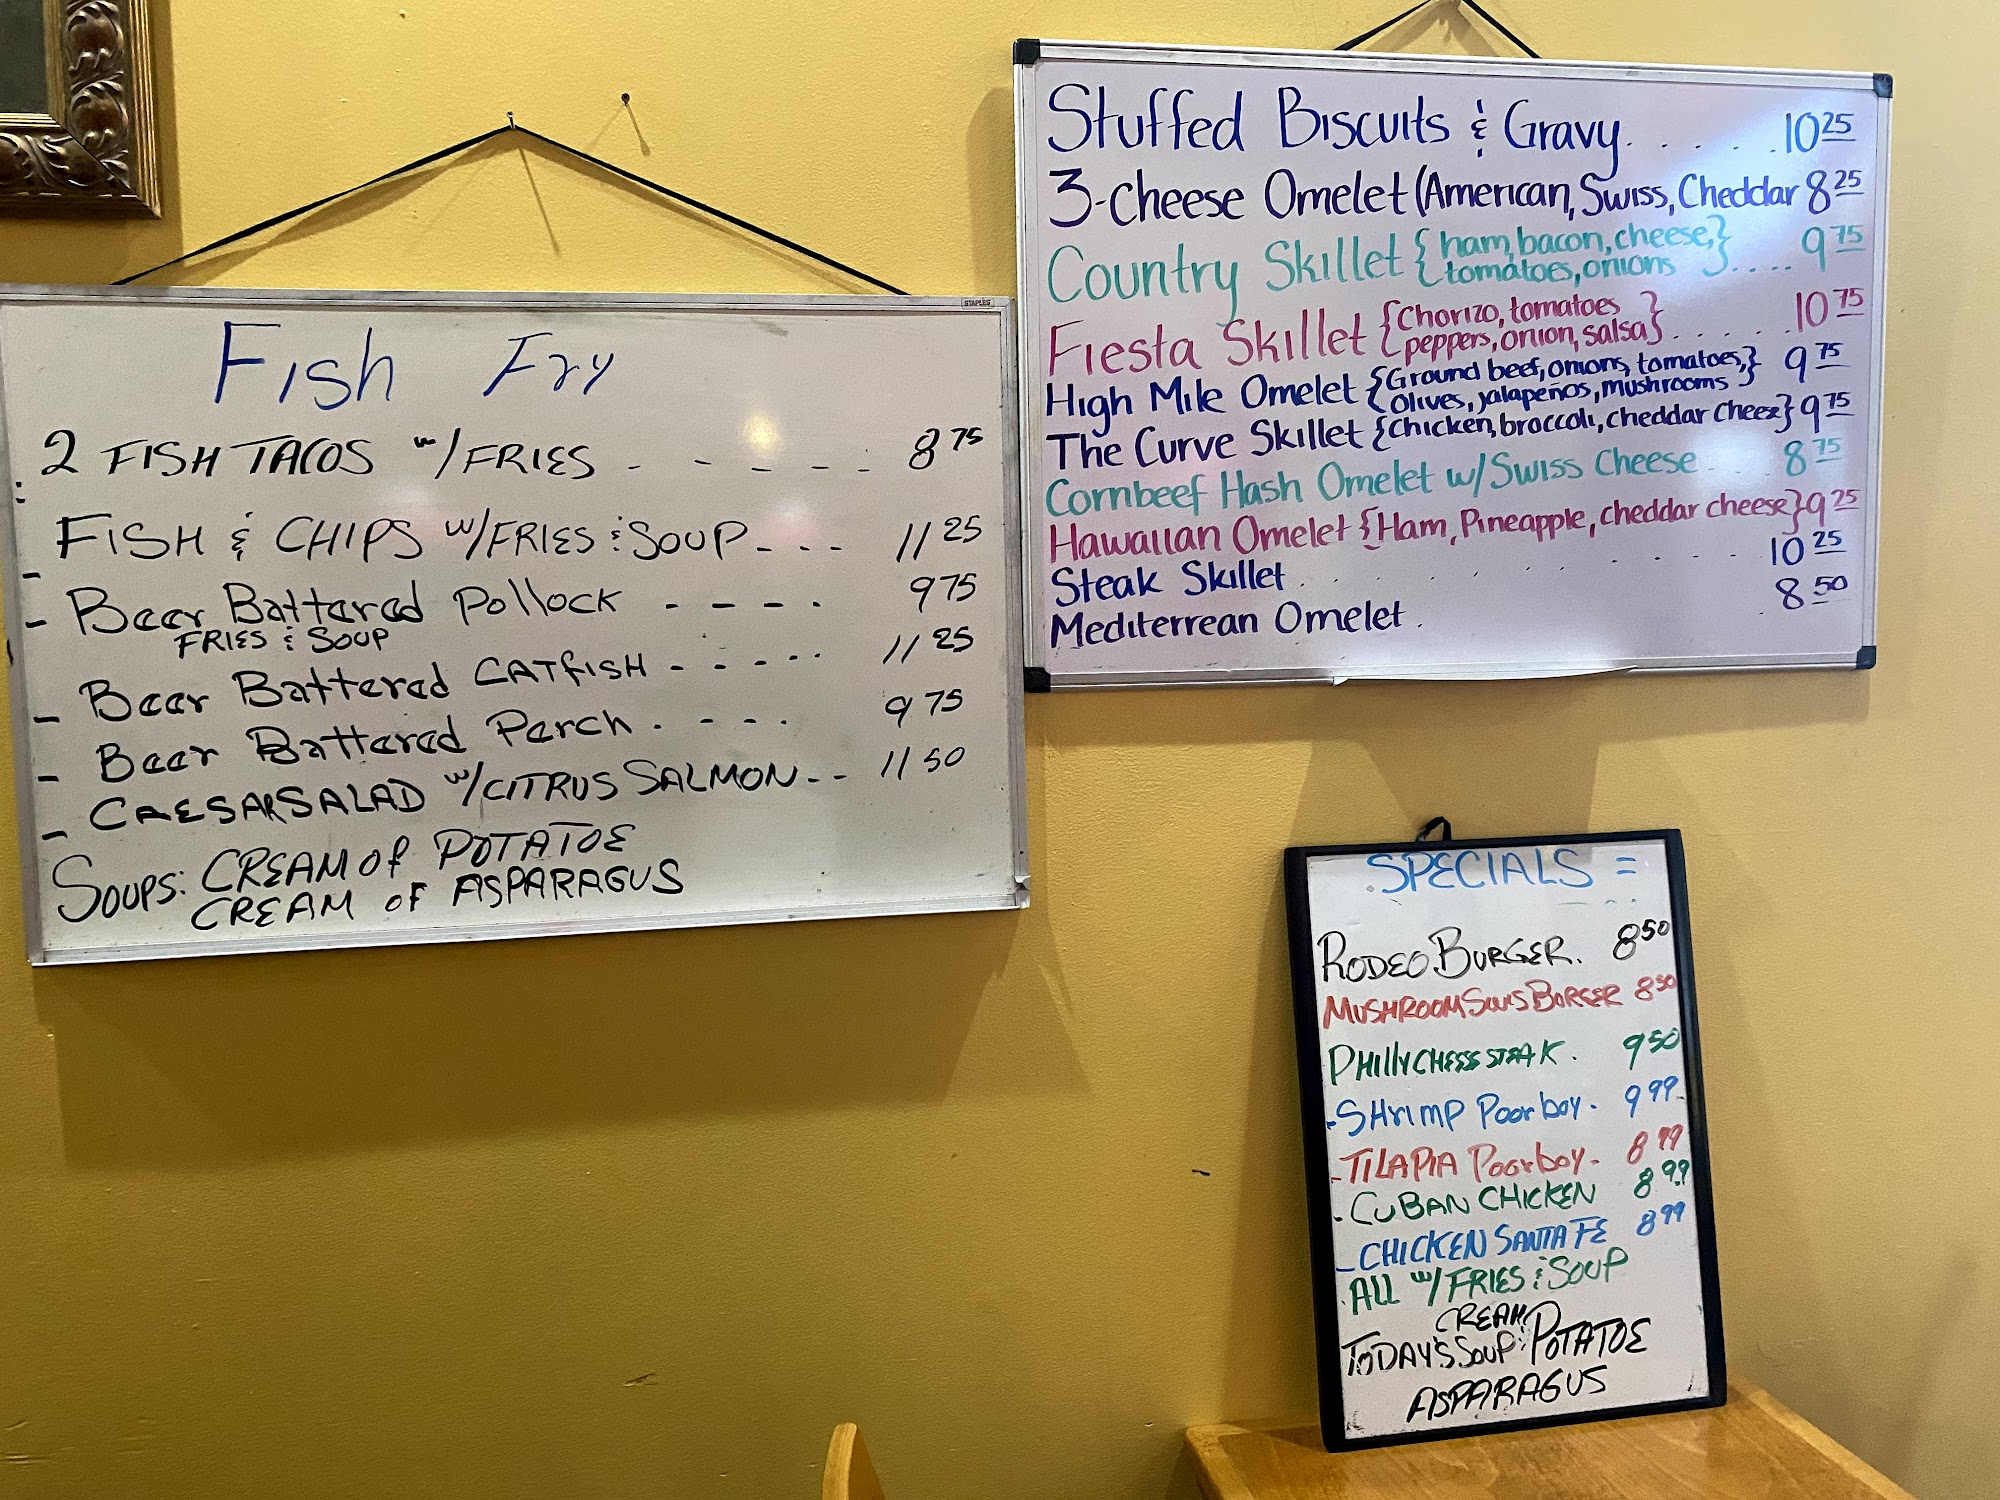 STAPLES
Fish Fry
2 FISH TACOS w/FRIES - - - - - - 8 75
FISH & CHIPS w/FRIES & SOUP - - - 11 25
- Beer Battered Pollock - - - - . 9 75
FRIES & SOUP
- Beer Battered CATFISH - - - - . 11 25
- Beer Battered Perch . - - - 9 75
- CAESAR SALAD w/CITRUS SALMON - - 11 50
SOUPS: CREAM OF POTATOE
CREAM OF ASPARAGUS
Stuffed Biscuits & Gravy. . . . . . 10 25
3-Cheese Omelet (American, Swiss, Cheddar 8 25
Country Skillet { ham, bacon, cheese, }
tomatoes, onions . . . . 9 75
Fiesta Skillet {Chorizo, tomatoes
peppers, onion, salsa} . . . . . 10 75
High Mile Omelet {Ground beef, onions, tomatoes,} 9 75
Olives, jalapeños, mushrooms
The Curve Skillet {Chicken, broccoli, cheddar cheese} 9 75
Cornbeef Hash Omelet w/Swiss Cheese 8 75
Hawaiian Omelet {Ham, Pineapple, cheddar cheese} 9 25
Steak Skillet . . . . . . . . 10 25
Mediterrean Omelet . 8 50
SPECIALS =
RODEO BURGER. 8 50
MUSHROOM SWIS BORGER 8 50
PHILLY CHEESE STEAK . 9 50
-SHrimp Poor boy. 9 99
-TILAPIA Poor boy- 8 99
-CUBAN CHICKEN 8 99
-CHICKEN SANTA FE 8 99
ALL w/FRIES & SOUP
CREAM
TODAY'S SOUP: POTATOE
ASPARAGUS